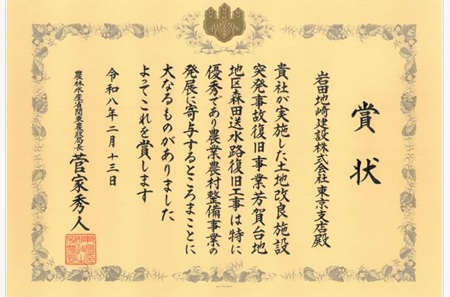 賞状
岩田地崎建設株式会社東京支店殿
貴社が実施した土地改良施設
突発事故復旧事業芳賀台地
地区森田送水路復旧工事は特に
優秀であり農業農村整備事業の
発展に寄与するところまことに
大なるものがありました
よってこれを賞します
令和八年二月十三日
農林水産省関東農政局長 菅家秀人